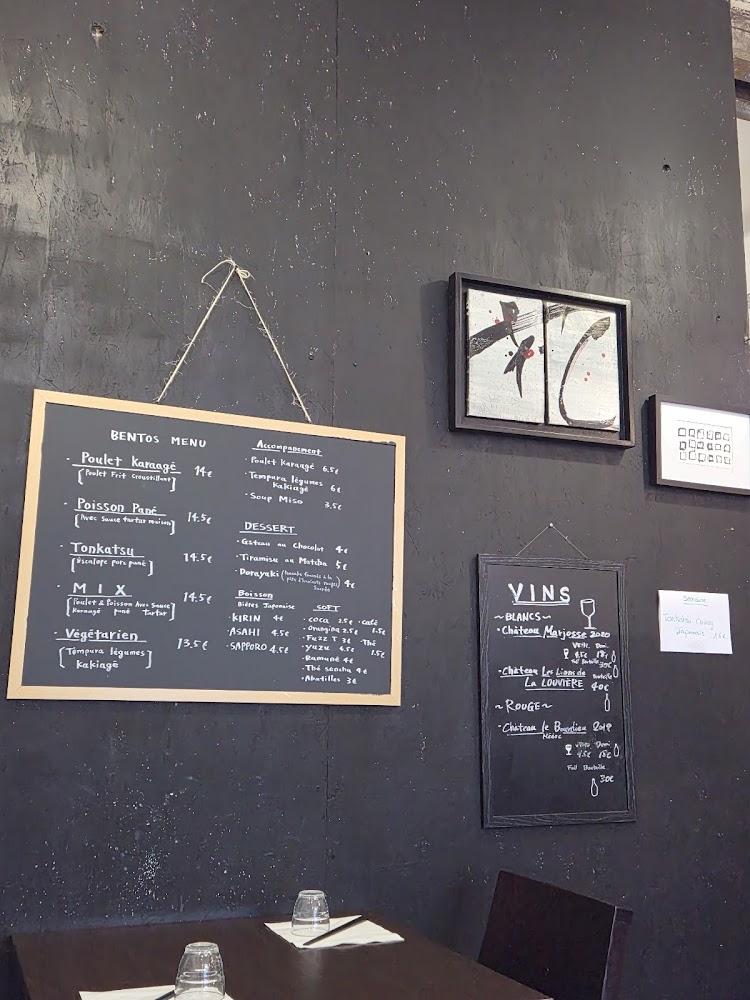 BENTOS MENU
· Poulet Karaagé 14€
[Poulet Frit Croustillant]
· Poisson Pané 14.5€
[Avec sauce tartar maison]
· Tonkatsu 14.5€
[Escalope porc pané]
· MIX 14.5€
[Poulet & Poisson Avec Sauce
Karaagé pané Tartar]
· Végétarien 13.5€
[Tempura légumes
Kakiagé]
Accompanement
· Poulet karaagé 6.5€
· Tempura légumes 6€
kakiagé
· Soup Miso 3.5€
DESSERT
· Gateau au Chocolat 4€
· Tiramisu au Matcha 5€
· Dorayaki 4€
Boisson
Bières Japonaise
· KIRIN 4€
· ASAHI 4.5€
· SAPPORO 4.5€
SOFT
· coca 2.5€
· Orangina 2.5€
· Fuzz T 3€
· yuzu 4.5€
· Ramuné 4€
· Thé sencha 4€
· Abatilles 3€
· café
1.5€
Thé
1.5€
VINS
~BLANCS~
· Château Marjosse 2020
Verre Demi
4.5€ 18€
Full Bouteille 30€
· Château Les Lions de Bouteille
La LOUVIERE 40€
~ROUGE~
· Château le Bourdieu 2019
Médoc
Verre Demi
4.5€ 18€
Full Bouteille
30€
Tonkatsu curry
Japonais